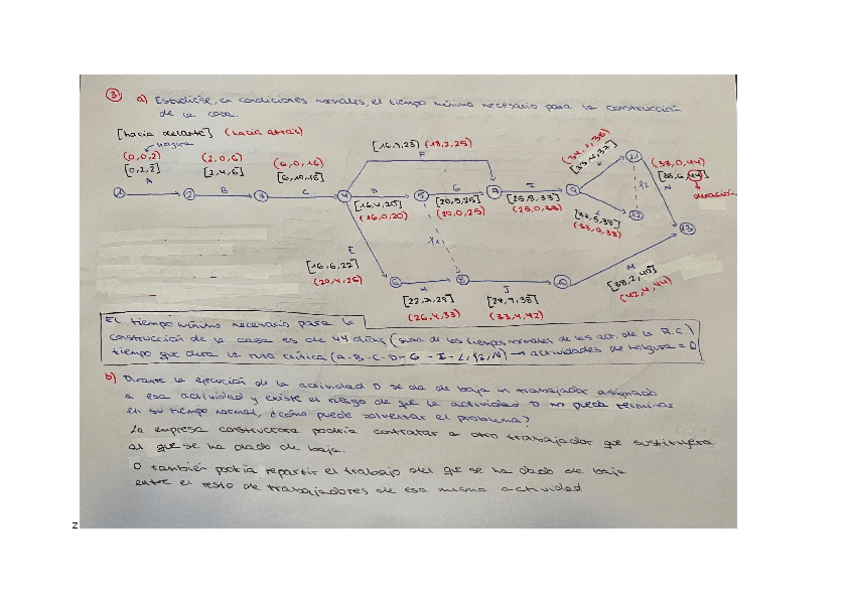 ③ a) Estúdiese, en condiciones normales, el tiempo mínimo necesario para la construcción
de la casa.
[hacia delante] (hacia atrás)
holgura
(0,0,2) (2,0,6) (6,0,16)
[0,2,2] [2,4,6] [6,10,16]
A B C
1 2 3 4
[16,7,23] (18,2,25)
F
D G I
5 7 9
[16,4,20] [20,5,25] [25,8,33]
(16,0,20) (20,0,25) (25,0,33)
(34,1,38)
[33,4,37]
11
(38,0,44)
[38,6,44]
N
duración
f2
L
[33,5,38]
(33,0,38)
12
13
E
[16,6,22]
(20,4,26)
f1
6 8 10
H J
[22,7,29] [29,9,38]
(26,4,33) (33,4,42)
M
[38,2,40]
(42,4,44)
El tiempo mínimo necesario para la
construcción de la casa es de 44 días (suma de los tiempos normales de las act. de la R.C.)
tiempo que dura la ruta crítica (A-B-C-D-G-I-L, f2, N) → actividades de holgura = 0
b) Durante la ejecución de la actividad D se da de baja un trabajador asignado
a esa actividad y existe el riesgo de que la actividad D no pueda terminar
en su tiempo normal, ¿cómo puede solventar el problema?
La empresa constructora podría contratar a otro trabajador que sustituyera
al que se ha dado de baja.
O también podría repartir el trabajo del que se ha dado de baja
entre el resto de trabajadores de esa misma actividad
z